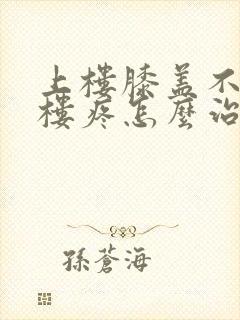 上樓膝盖不
樓疼怎麼治
孫蒼海